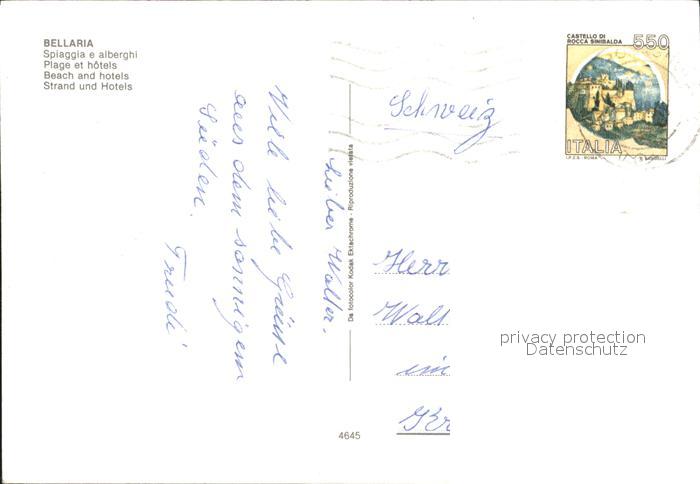 BELLARIA
Spiaggia e alberghi
Plage et hôtels
Beach and hotels
Strand und Hotels
Lieber Walter.
Viele liebe Grüsse
aus dem sonnigem
Süden.
Trudi
Da fotocolor Kodak Ektachrome - Riproduzione vietata
4645
CASTELLO DI
ROCCA SINIBALDA
550
ITALIA
I.P.Z.S. - ROMA
Schweiz
Herr
Walt
im
privacy protection
Datenschutz